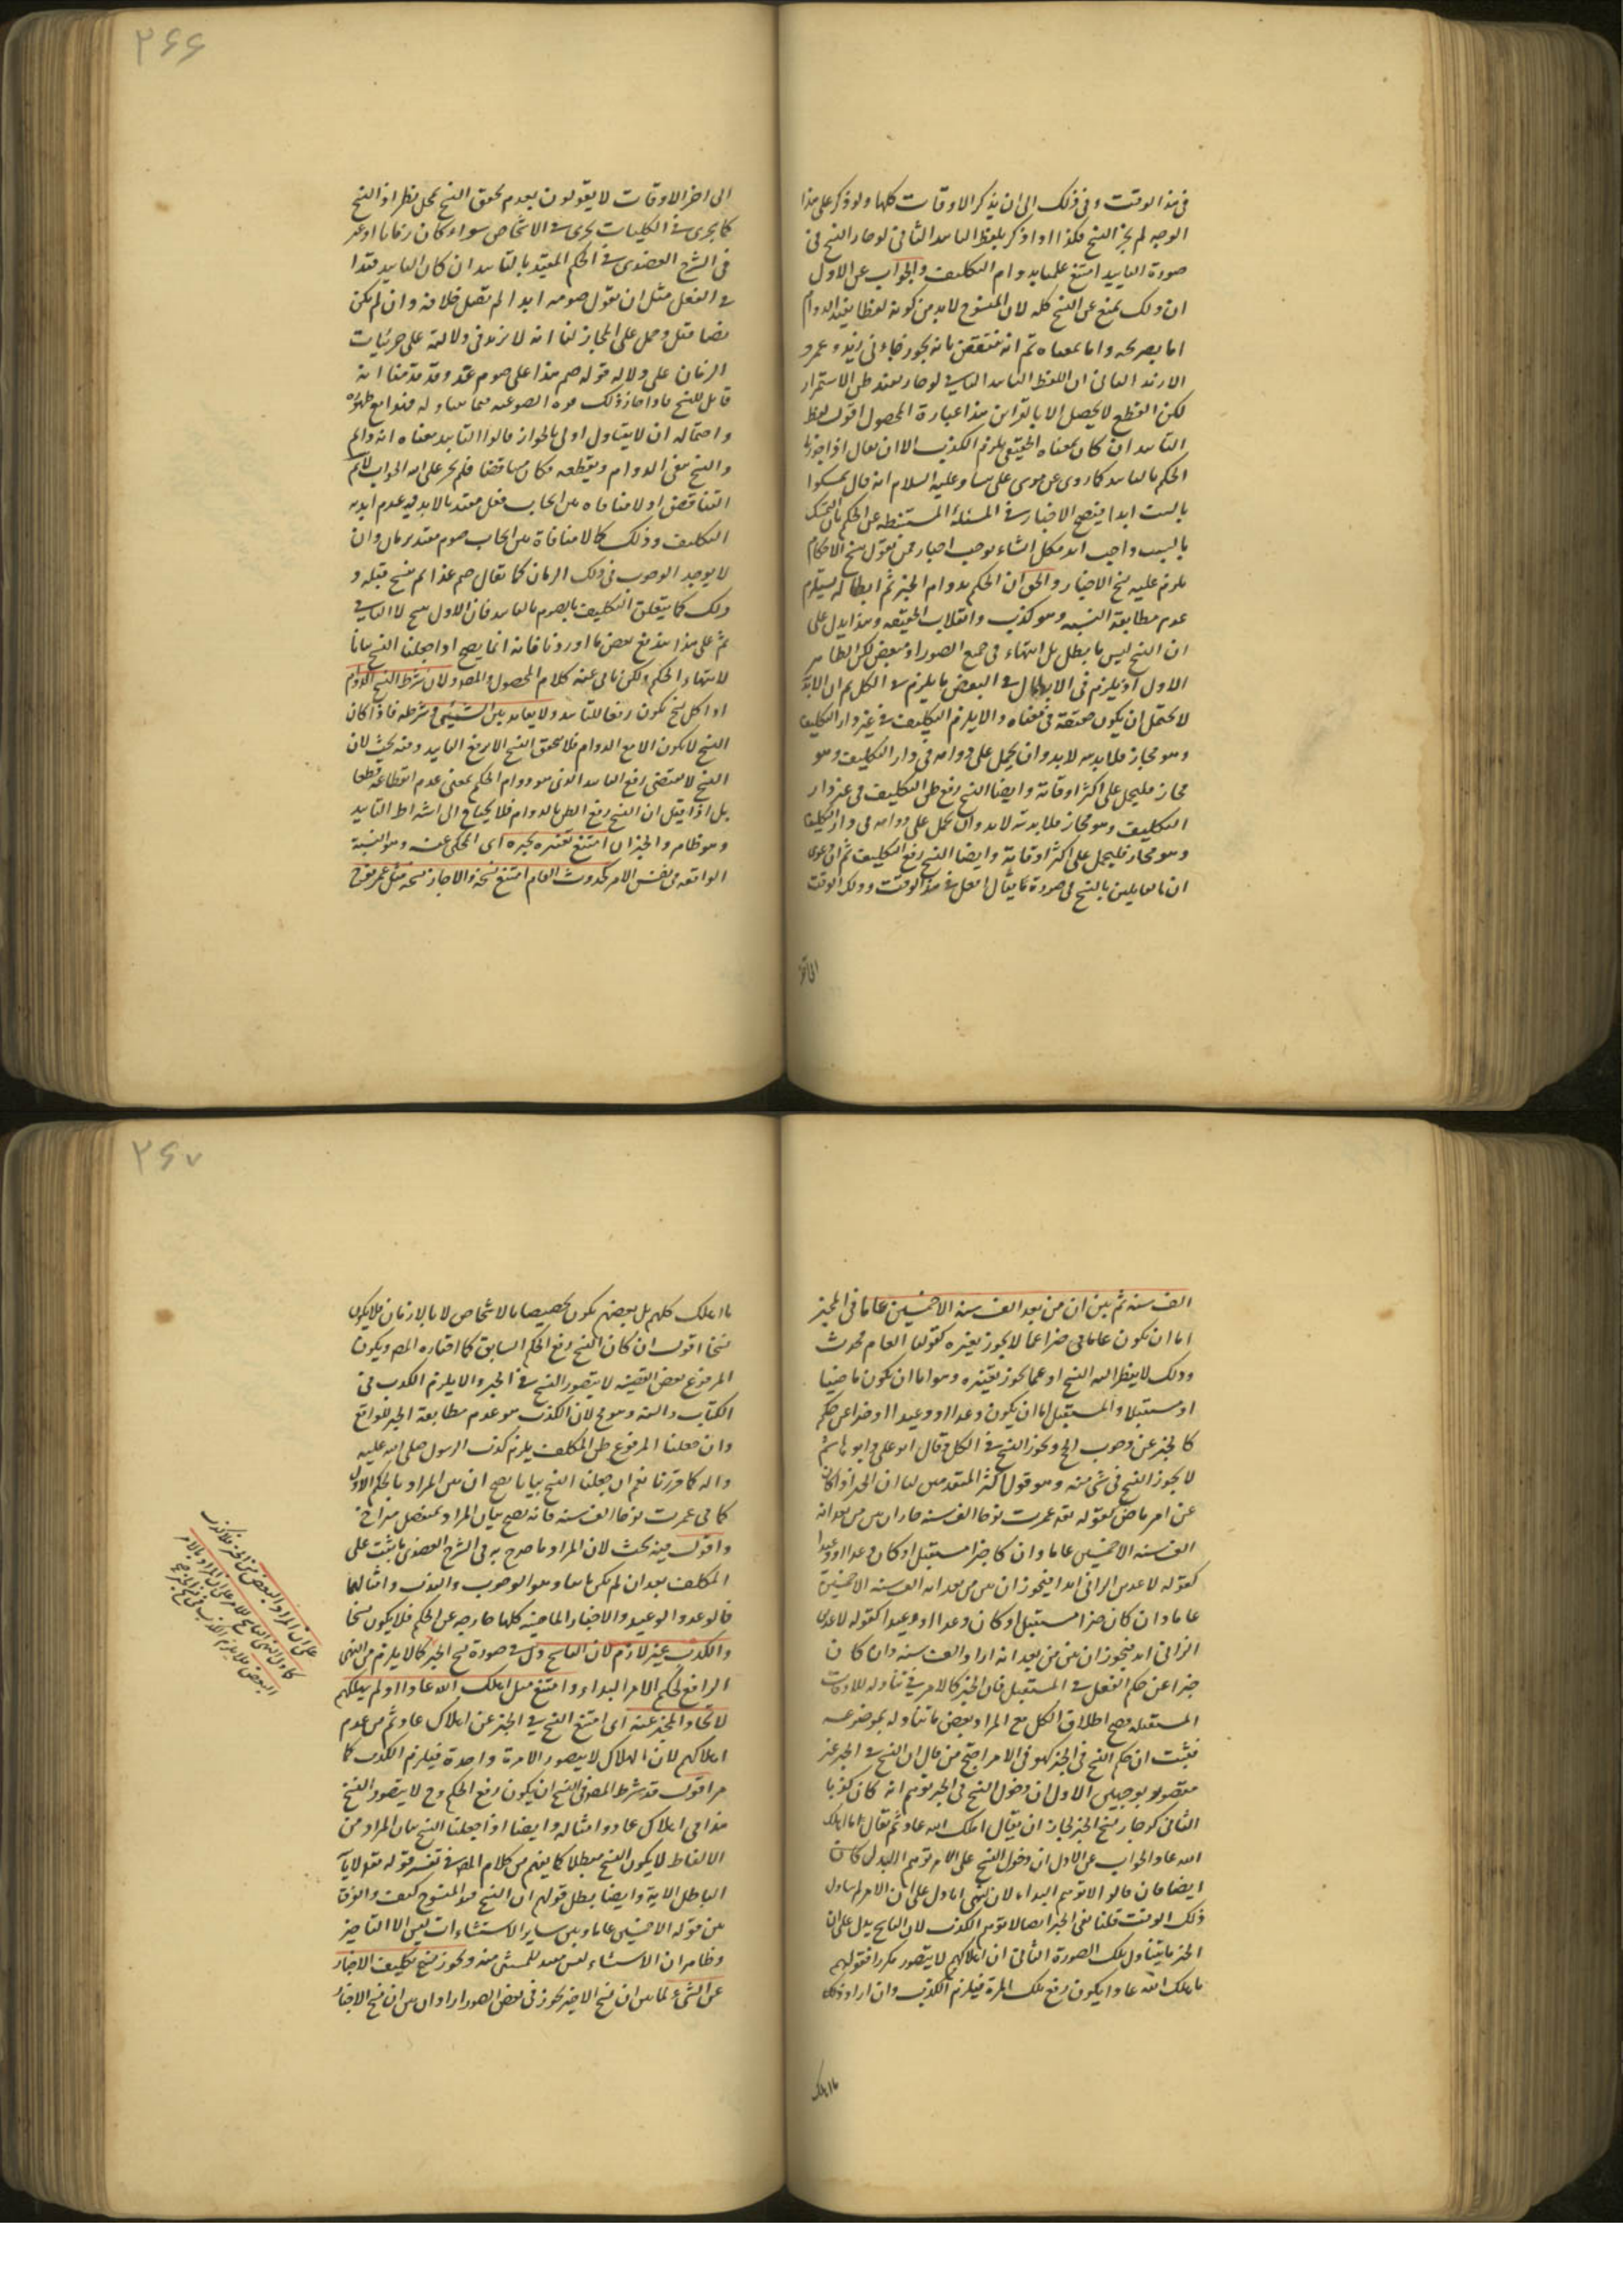 في هذا الوقت وفي ذلك الى ان يذكر الاوقات كلها ولو ذكر على هذا
الوجه لم يجز النسخ فكذا اذا ذكر بلفظ التابيد الثاني لو جاز النسخ في
صورة التابيد امتنع علمنا بدوام التكليف والجواب عن الاول
ان ذلك يمنع عن النسخ كله لان المنسوخ لابد من كونه لفظا يفيد الدوام
اما بصريحه واما بمعناه ثم انه منتقض بانه يجوز جاءني زيد وعمرو
لكن القطع لا يحصل الا بالقراين هذا عبارة المحصول اقول لفظ
التابيد ان كان بمعناه الحقيقي يلزم الكذب الا ان يقال اذا جوزنا
الحكم بالتابيد كما روي عن موسى على نبينا وعليه السلام انه قال تمسكوا
بالسبت ابدا
بالسبت واجب ابدا فكل انشاء يوجب اخبارا فمن يقول بنسخ الاحكام
يلزم عليه نسخ الاخبار والحق ان الحكم بدوام الخبر ثم ابطاله يستلزم
عدم مطابقة النسبة وهو كذب وانقلاب الحقيقة وهذا يدل على
ان النسخ ليس بابطال بل انتهاء في جميع الصور او بعض لكن الظاهر
الاول اذ يلزم في الابطال في البعض ما يلزم في الكل ثم ان الابد
لا يحتمل ان يكون حقيقة في معناه والا يلزم التكليف في غير دار التكليف
وهو مجاز فلا بد من لابد وان يحمل على دوامه في دار التكليف وهو
مجاز فليحمل على اكثر اوقاته وايضا النسخ رفع ظن التكليف في غير دار
التكليف وهو مجاز فلا بد من لابد وان يحمل على دوامه في دار التكليف
وهو مجاز فليحمل على اكثر اوقاته وايضا النسخ رفع التكليف ثم ان دعوى
ان القايلين بالنسخ في صورة ما يقال افعل في هذا الوقت وذلك الوقت
الى اخر
الى اخر الاوقات لا يقولون بعدم تحقق النسخ محل نظر اذ النسخ
كما يجري في الكليات يجري في الاشخاص سواء كان زمانا او غير
في الشرح العضدي في الحكم المقيد بالتابيد ان كان التابيد قيدا
في الفعل مثل ان يقول صوموا ابدا لم يقبل خلافه وان لم يكن
نصا قبل وحمل على المجاز لنا انه لا يزيد في دلالته على جزئيات
الزمان على دلالة قوله صم هذا على صوم غد وقد قدمنا انه
قابل للنسخ فاذا جاز ذلك
واحتماله ان لا يتناول اولى بالجواز قالوا التابيد معناه انه دايم
والنسخ ينفي الدوام ويقطعه فكان متناقضا فلم يجز على الله الجواب لا نم
التناقض اذ لا منافاة بين ايجاب فعل مقيد بالابد وعدم ابدية
التكليف وذلك كما لا منافاة بين ايجاب صوم مقيد بزمان وان
لا يوجد الوجوب في ذلك الزمان كما يقال صم غدا ثم نسخ قبله و
ذلك كما يتعلق التكليف بالصوم
ثم على هذا يندفع بعض ما اوردنا فانه انما يصح اذا جعلنا النسخ بيانا
لانتهاء الحكم ولكن نابى عنه كلام المحصول والمص ولان شرط النسخ الدوام
اذ كل نسخ يكون رفعا للتابيد ولا يعاند بين الشيئي وشرطه فاذا كان
النسخ لا يكون الا مع الدوام فلا يتحقق النسخ الا برفع التابيد وفيه بحث لان
النسخ لا يقتضي رفع التابيد الذي هو دوام الحكم بمعنى عدم انقطاعه قطعا
بل اذا قيل ان النسخ رفع الظن بالدوام فلا يحتاج الى اشتراط التابيد
وهو ظاهر والخبر ان امتنع تغييره بخبره اي المحكي عنه وهو النسبة
الواقعة في نفس الامر كحدوث العالم امتنع نسخه والا جاز نسخه مثل عمر نوح
الف سنة ثم بين ان من بعد الف سنة الا خمسين عاما في الخبر
اما ان يكون عاما في خبرا عما لا يجوز تغيره كقولنا العالم محدث
وذلك لا يتطرق اليه النسخ او عما يجوز تغييره وهو اما ان يكون ماضيا
او مستقبلا والمستقبل اما ان يكون وعدا او وعيدا او خبرا عن حكم
كالخبر عن وجوب الحج ويجوز النسخ في الكل وقال ابو علي وابو هاشم
لا يجوز النسخ في شي منه وهو قول اكثر المتقدمين لنا ان الخبر اذا كان
عن امر ماض كقوله لقد عمرت نوحا الف سنة جاز ان يبين من بعد انه
الف سنة الا خمسين عاما وان كان خبرا مستقبلا وكان وعدا او وعيدا
كقوله لاعذبن الزاني ابدا فيجوز ان يبين من بعد انه الف سنة الا خمسين
عاما وان كان خبرا مستقبلا وكان وعدا او وعيدا كقوله لاعذبن
الزاني ابدا فيجوز ان يبين من بعد انه اراد الف سنة وان كان
خبرا عن حكم الفعل في المستقبل فان الخبر كالامر في تناوله للاوقات
المستقبلة فصح اطلاق الكل مع المراد بعض ما تناوله بموضوعه
فثبت ان حكم النسخ في الخبر كهو في الامر احتج من قال ان النسخ في الخبر غير
مقصود بوجهين الاول ان دخول النسخ في الخبر توهم انه كان كذبا
الثاني لو جاز نسخ الخبر لجاز ان يقال اهلك الله عادا ثم يقال ما اهلك
الله عادا والجواب عن الاول ان دخول النسخ على الامر توهم البداء كان
ايضا فان قالوا لا توهم البداء لان النهي انما دل على ان الامر لم يتناول
ذلك الوقت قلنا نفي الخبر ايضا لا توهم الكذب لان الناسخ يدل على ان
الخبر ما يتناول تلك الصورة الثاني ان اهلاكهم لا يتصور مكررا فقولهم
ما اهلك الله عادا يكون رفع تلك المرة فيلزم الكذب وان اراد ذلك
ما اهلك
ما اهلك كلهم بل بعضهم يكون تخصيصا بالاشخاص لا بالازمان فلا يكون
نسخا اقول ان كان النسخ رفع الحكم السابق كما اختاره المص ويكون
المرفوع بعض القضية لا يتصور النسخ في الخبر والا يلزم الكذب في
الكتاب والسنة وهو مح لان الكذب هو عدم مطابقة الخبر للواقع
وان جعلنا المرفوع ظن المكلف يلزم كذب الرسول صلى الله عليه
واله كما قررنا نعم ان جعلنا النسخ بيانا يصح ان يبين المراد بالحكم الاول
كما في عمرت نوحا الف سنة فانه يصح بيان المراد بمنفصل متراخ
واقول فيه بحث لان المراد ما صرح به في الشرح العضدي ما يثبت على
المكلف بعد ان لم يكن ثابتا وهو الوجوب والندب وامثالهما
فالوعد والوعيد والاخبار الماضية كلها خارجة عن الحكم فلا يكون نسخا
والكذب غير لازم لان الناسخ دل في صورة نسخ الخبر كما لا يلزم من النهي
الرافع لحكم الامر البداء وامتنع مثل اهلك الله عادا او لم يهلكهم
لاتحاد المخبر عنه اي امتنع النسخ في الخبر عن اهلاك عاد ثم من عدم
اهلاكهم لان الهلاك لا يتصور الا مرة واحدة فيلزم الكذب كما
مر اقول قد شرط المص في النسخ ان يكون رفع الحكم وح لا يتصور النسخ
هذا في اهلاك عاد وامثاله وايضا اذا جعلنا النسخ بيان المراد من
الالفاظ لا يكون النسخ مبطلا كما يفهم من كلام المص في تفسير قوله تعالى لا ياتيه
الباطل الاية وايضا يبطل قولهم ان النسخ ضد المنسوخ كيف والفرق
بين قوله الا خمسين عاما وبين ساير الاستثناءات ليس الا التاخير
وظاهر ان الاستثناء ليس ضد للمستثنى منه ويجوز نسخ تكليف الاخبار
عن الشيء لما بين ان نسخ الاخير يجوز في بعض الصور اراد ان يبين ان نسخ الاخبار
على ان المراد البعض من الخبر فلا كذب
كما دل النهي الناسخ للامر على ان المراد بالامر
البعض فلا يلزم الكذب في نسخ الخبر